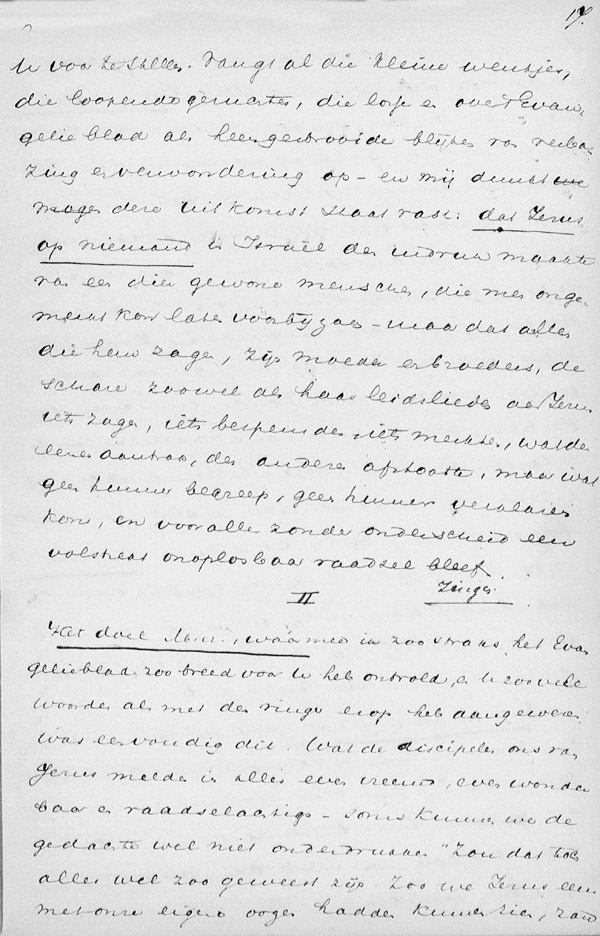 17.
U voor te stellen. Vangt al die kleine wenkjes,
die loopende geruchten, die losse en over 't Evan-
gelie blad als heen gestrooide blijken van verba-
zing en verwondering op – en mij dunkt
dat Jezus
op niemand in Israël den indruk maakte
van een dier gewone menschen, die men onge-
merkt kon laten voorbijgaan – maar dat allen
die hem zagen, zijn moeder en broeders, de
schare zoowel als haar leidslieden aan Jezus
iets zagen, iets bespeurden, iets merkten, wat den
eenen aantrok, den anderen afstootte, maar wat
geen hunner begreep, geen hunner verklaren
kon, en voor allen zonder onderscheid een
volstrekt onoplosbaar raadsel bleef.
Zingen.
II
Het doel M.H., waarmeê ik zoo straks het Evan-
gelieblad zoo breed voor U heb ontrold, en U zoovele
woorden als met den vinger erop heb aangewezen
was eenvoudig dit. Wat de discipelen ons van
Jezus melden is alles even vreemd, even wonder-
baar en raadselachtig – soms kunnen we de
gedachte wel niet onderdrukken "Zou dat toch
alles wel zoo geweest zijn. Zoo we Jezus eens
met onze eigen oogen hadden kunnen zien, zou